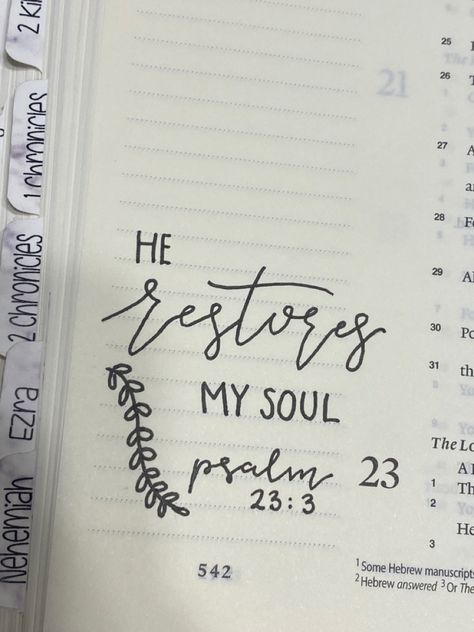 2 Ki
1 Chronicles
2 Chronicles
Ezra
Nehemiah
HE
restores
MY SOUL
psalm
23:3
542
25
21
26
27
28
29
30
Po
31
th
The Lo
23
A
1
Th
2
He
3
1 Some Hebrew manuscripts
2 Hebrew answered 3 Or The